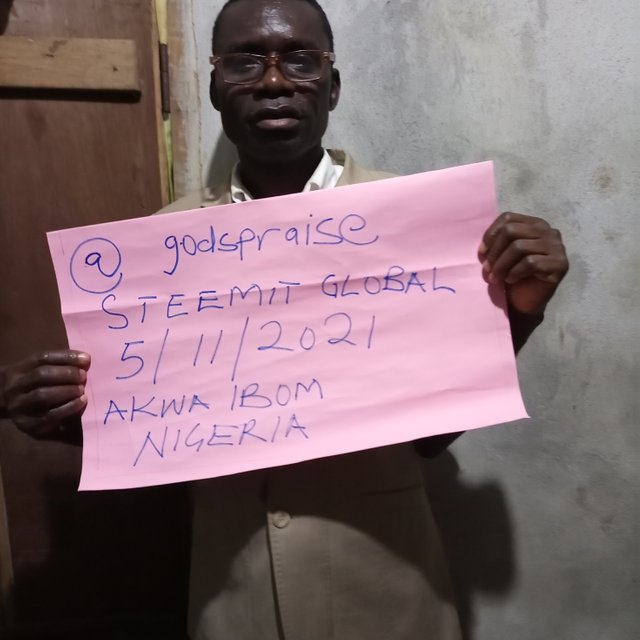 @ godspraise
STEEMIT GLOBAL
5/11/2021
AKWA IBOM
NIGERIA